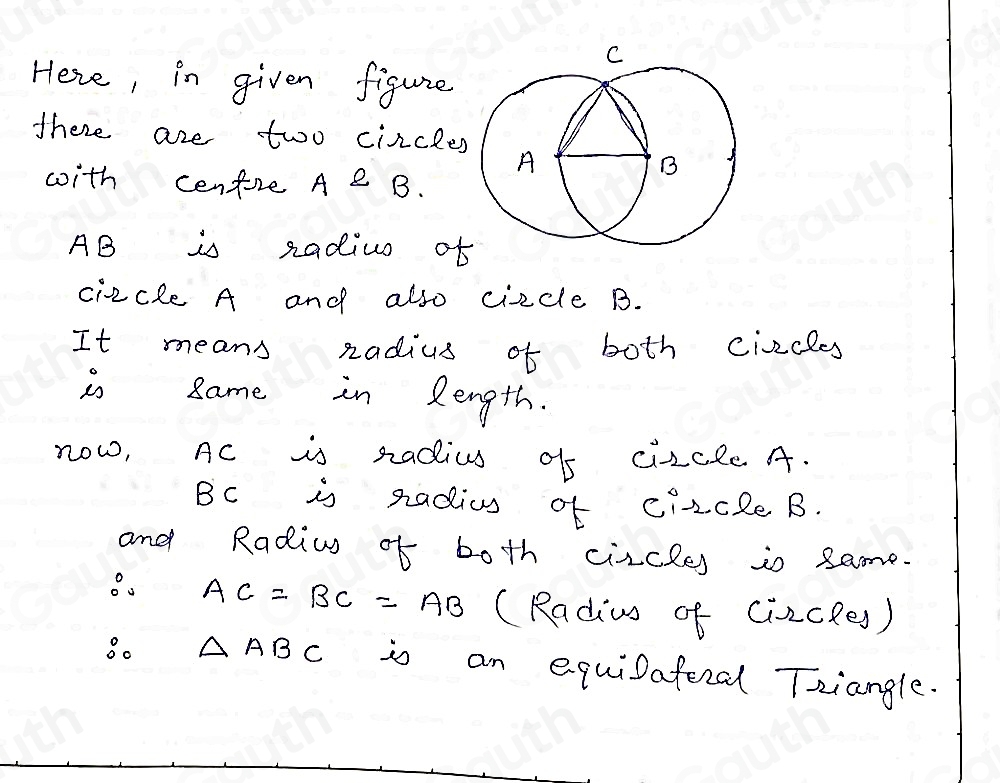 Here, in given figure
there are two circles
with centre A & B.
C
A
B
AB is radius of
circle A and also circle B.
It means radius of both circles
is same in length.
now, AC is radius of circle A.
BC is radius of circle B.
and Radius of both circles is same.
∴ AC = BC = AB (Radius of Circles)
∴ △ ABC is an equilateral Triangle.
Gauth